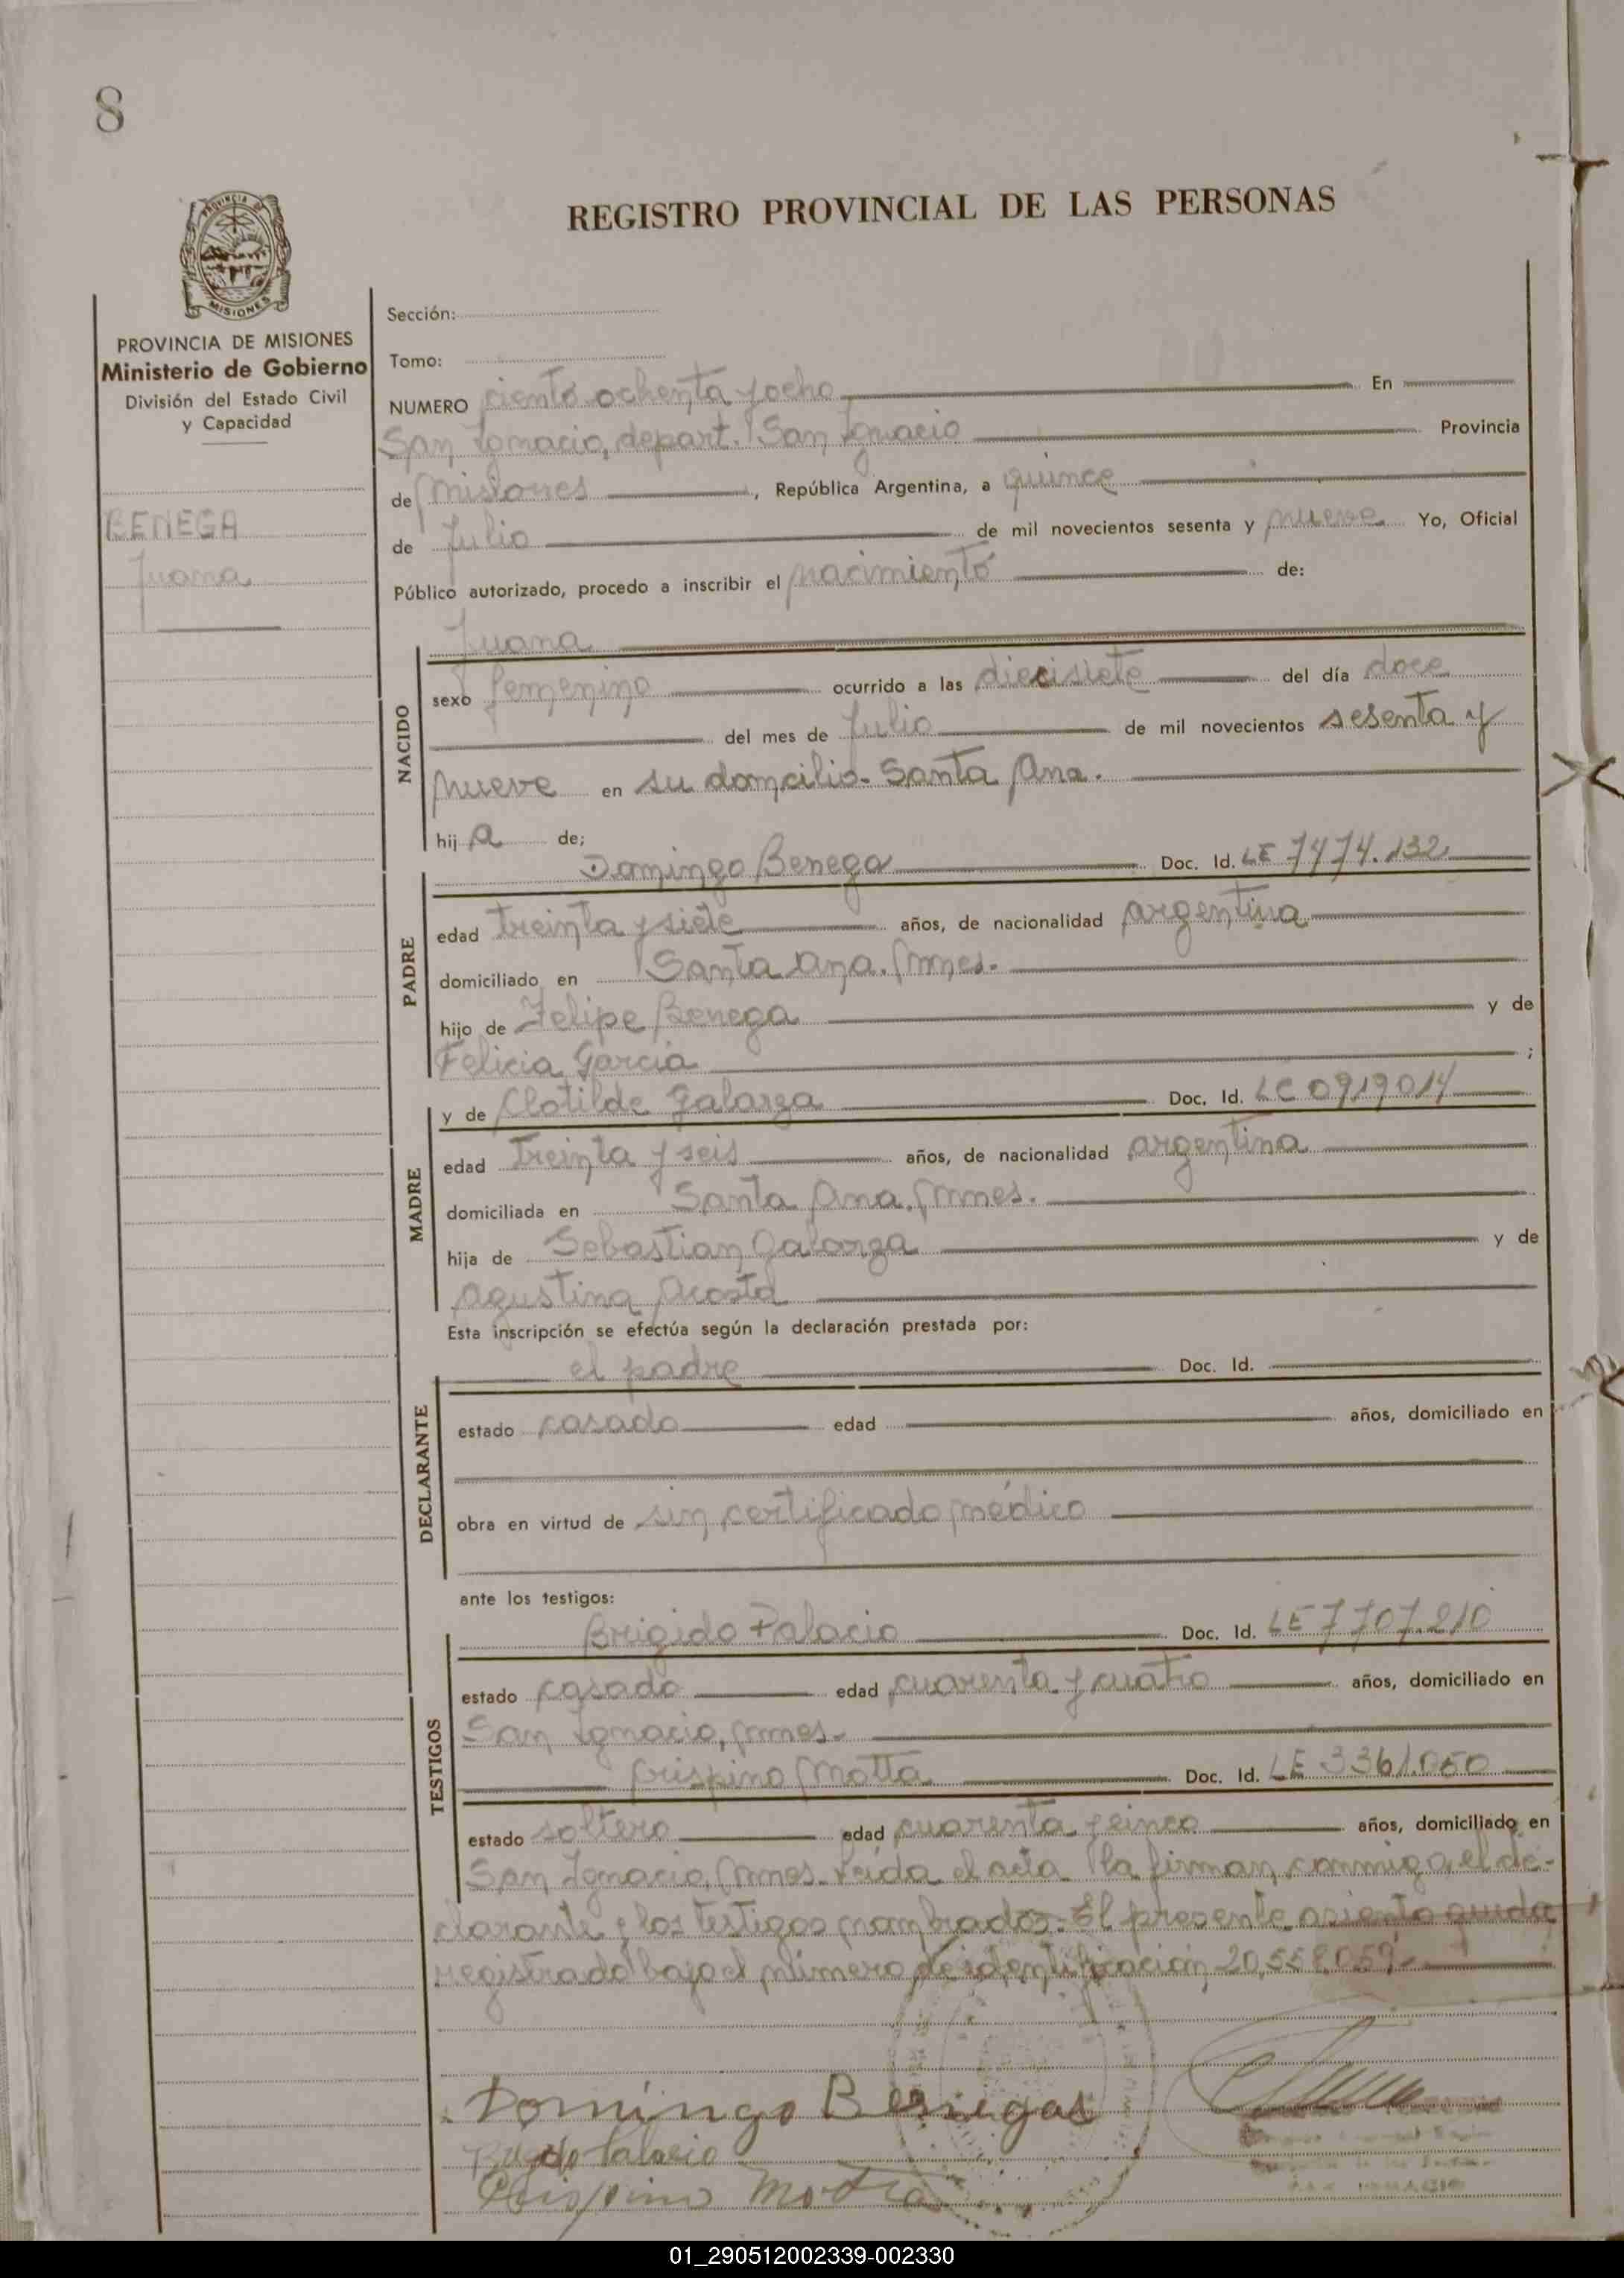 8
PROVINCIA DE
MISIONES
REGISTRO PROVINCIAL DE LAS PERSONAS
PROVINCIA DE MISIONES
Ministerio de Gobierno
División del Estado Civil
y Capacidad
BENEGA
Juana
Sección:
Tomo:
NUMERO ciento ochenta y ocho En
San Ignacio, depart. San Ignacio Provincia
de Misiones, República Argentina, a quince
de Julio de mil novecientos sesenta y nueve Yo, Oficial
Público autorizado, procedo a inscribir el nacimiento de:
Juana
NACIDO
sexo femenino ocurrido a las diecisiete del día doce
del mes de Julio de mil novecientos sesenta y
nueve en su domcilio- Santa Ana.
hij a de;
Domingo Benega Doc. Id. LE 7474.132
PADRE
edad treinta y siete años, de nacionalidad argentina
domiciliado en Santa Ana. Mnes.
hijo de Felipe Benega y de
Felicia Garcia ;
y de Clotilde Galarza Doc. Id. LC 0919014
MADRE
edad treinta y seis años, de nacionalidad argentina
domiciliada en Santa Ana. Mnes.
hija de Sebastian Galarza y de
Agustina Acosta
Esta inscripción se efectúa según la declaración prestada por:
el padre Doc. Id.
DECLARANTE
estado casado edad años, domiciliado en
obra en virtud de sin certificado médico
ante los testigos:
Brigido Palacio Doc. Id. LE 7707.210
TESTIGOS
estado casado edad cuarenta y cuatro años, domiciliado en
San Ignacio, Mnes.
Crispino Motta Doc. Id. LE 3361.050
estado soltero edad cuarenta y cinco años, domiciliado en
San Ignacio, Mnes. Leída el acta la firman conmigo, el de-
clarante y los testigos nombrados. El presente asiento queda
registrado bajo el número de identificación 20.558.059.-
Domingo Benegas
Palacio
Crispino Motta
IGNACIO
01_290512002339-002330